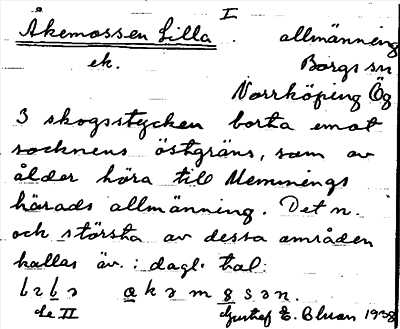 I
Åkemossen Lilla . allmänning
ek. Borgs sn
Norrköping Ög
3 skogsstycken borta emot
socknens östgräns, som av
ålder höra till Memmings
härads allmänning. Det n.
och största av dessa områden
kallas äv. : dagl. tal:
åkəmosən.
se II Gustaf E. Bluan 1938